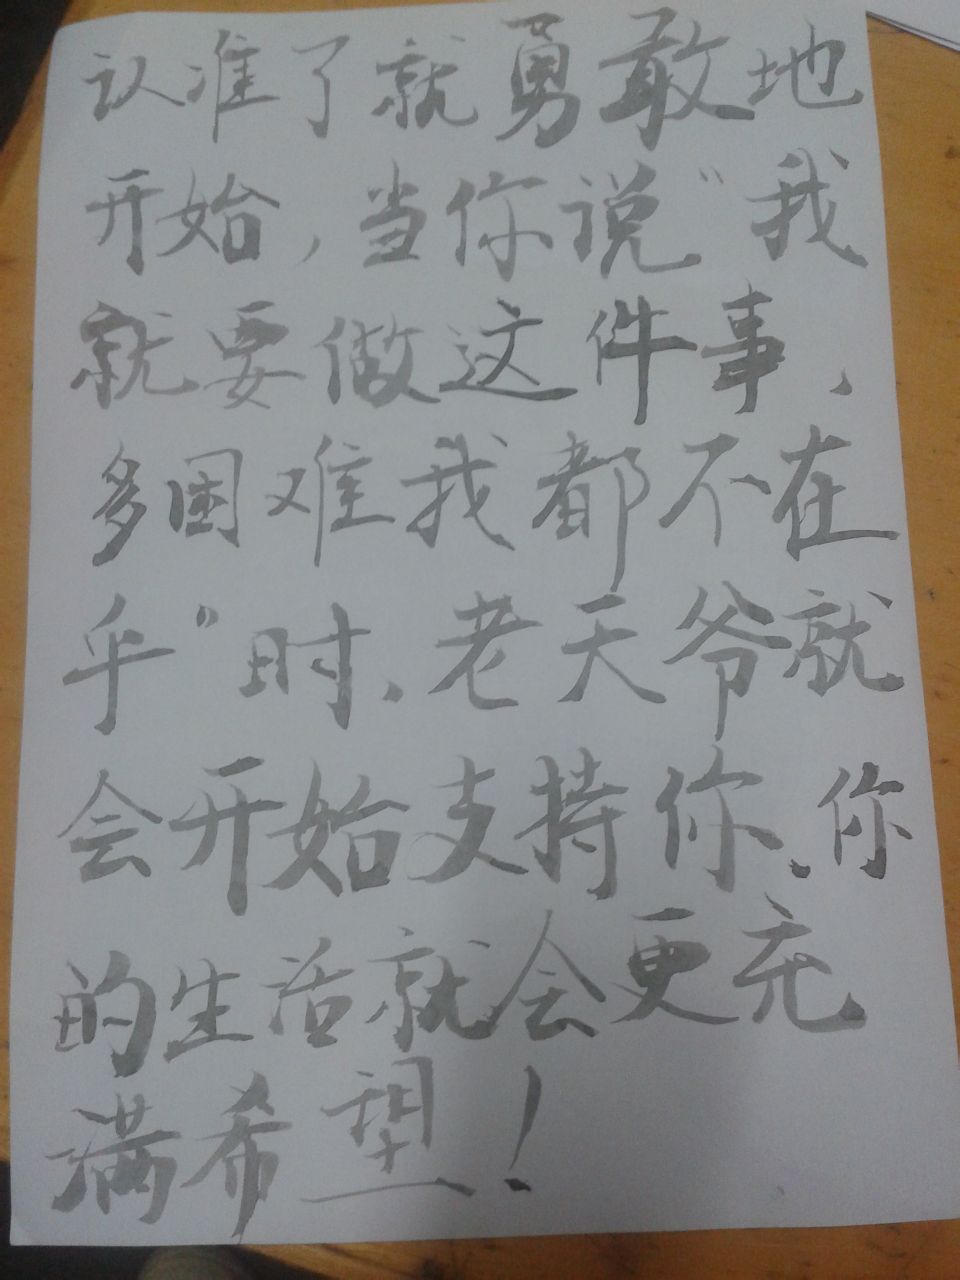 认准了就勇敢地
开始,当你说“我
就要做这件事,
多困难我都不在
乎”时、老天爷就
会开始支持你、你
的生活就会更充
满希望!